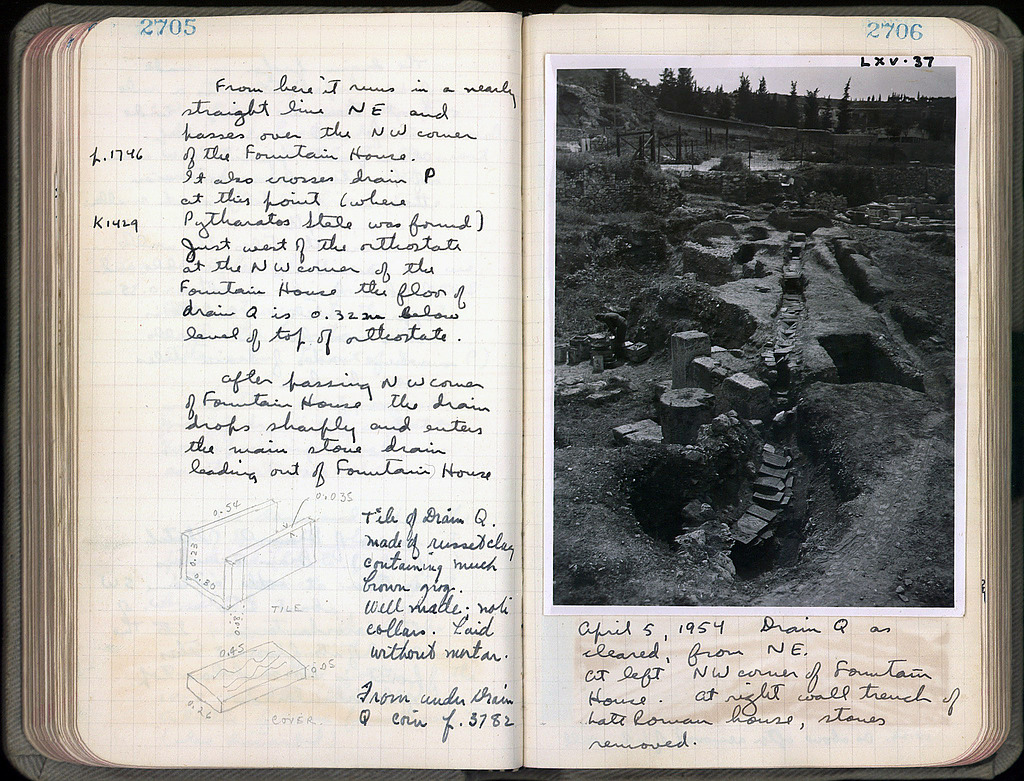 2705
From here it runs in a nearly
straight line NE and
passes over the NW corner
p.1746 of the Fountain House.
It also crosses drain P
at this point (where
K1429 Pytharatos Stele was found)
Just west of the orthostate
at the NW corner of the
Fountain House the floor of
drain Q is 0.32m below
level of top of orthostate.
After passing NW corner
of Fountain House the drain
drops sharply and enters
the main stone drain
leading out of Fountain House
0.54
0.035
0.25
0.30
TILE
0.45
0.05
0.26
COVER
Tile of Drain Q.
made of russet clay
containing much
brown grog.
Well made. not
collars. Laid
without mortar.
From under Drain
Q coin p. 3782
2706
LXV·37
April 5, 1954 Drain Q as
cleared, from NE.
at left NW corner of Fountain
House. at right wall trench of
Late Roman house, stones
removed.